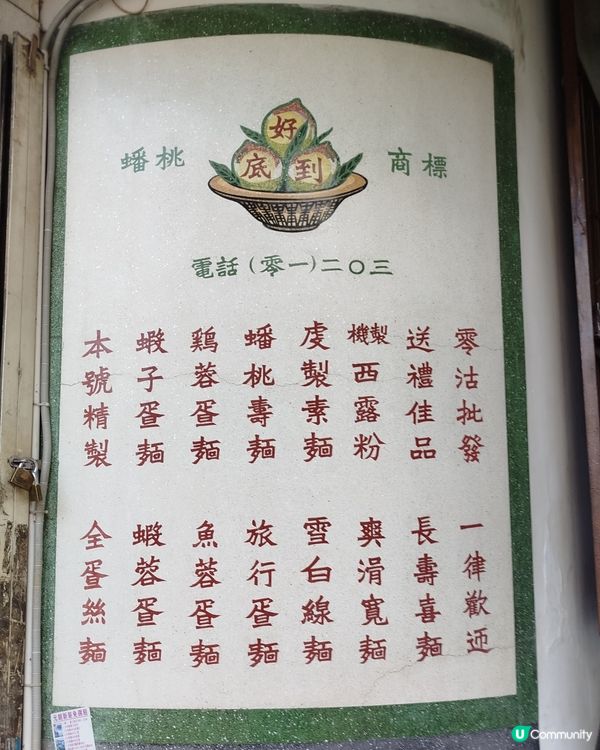 好到底
蟠桃 商標
電話(零一)二〇三
本號精製
蝦子蛋麵
鷄蓉蛋麵
蟠桃壽麵
虔製素麵
機製西露粉
送禮佳品
零沽批發
全蛋絲麵
蝦蓉蛋麵
魚蓉蛋麵
旅行蛋麵
雪白線麵
爽滑寬麵
長壽喜麵
一律歡迎
U Community